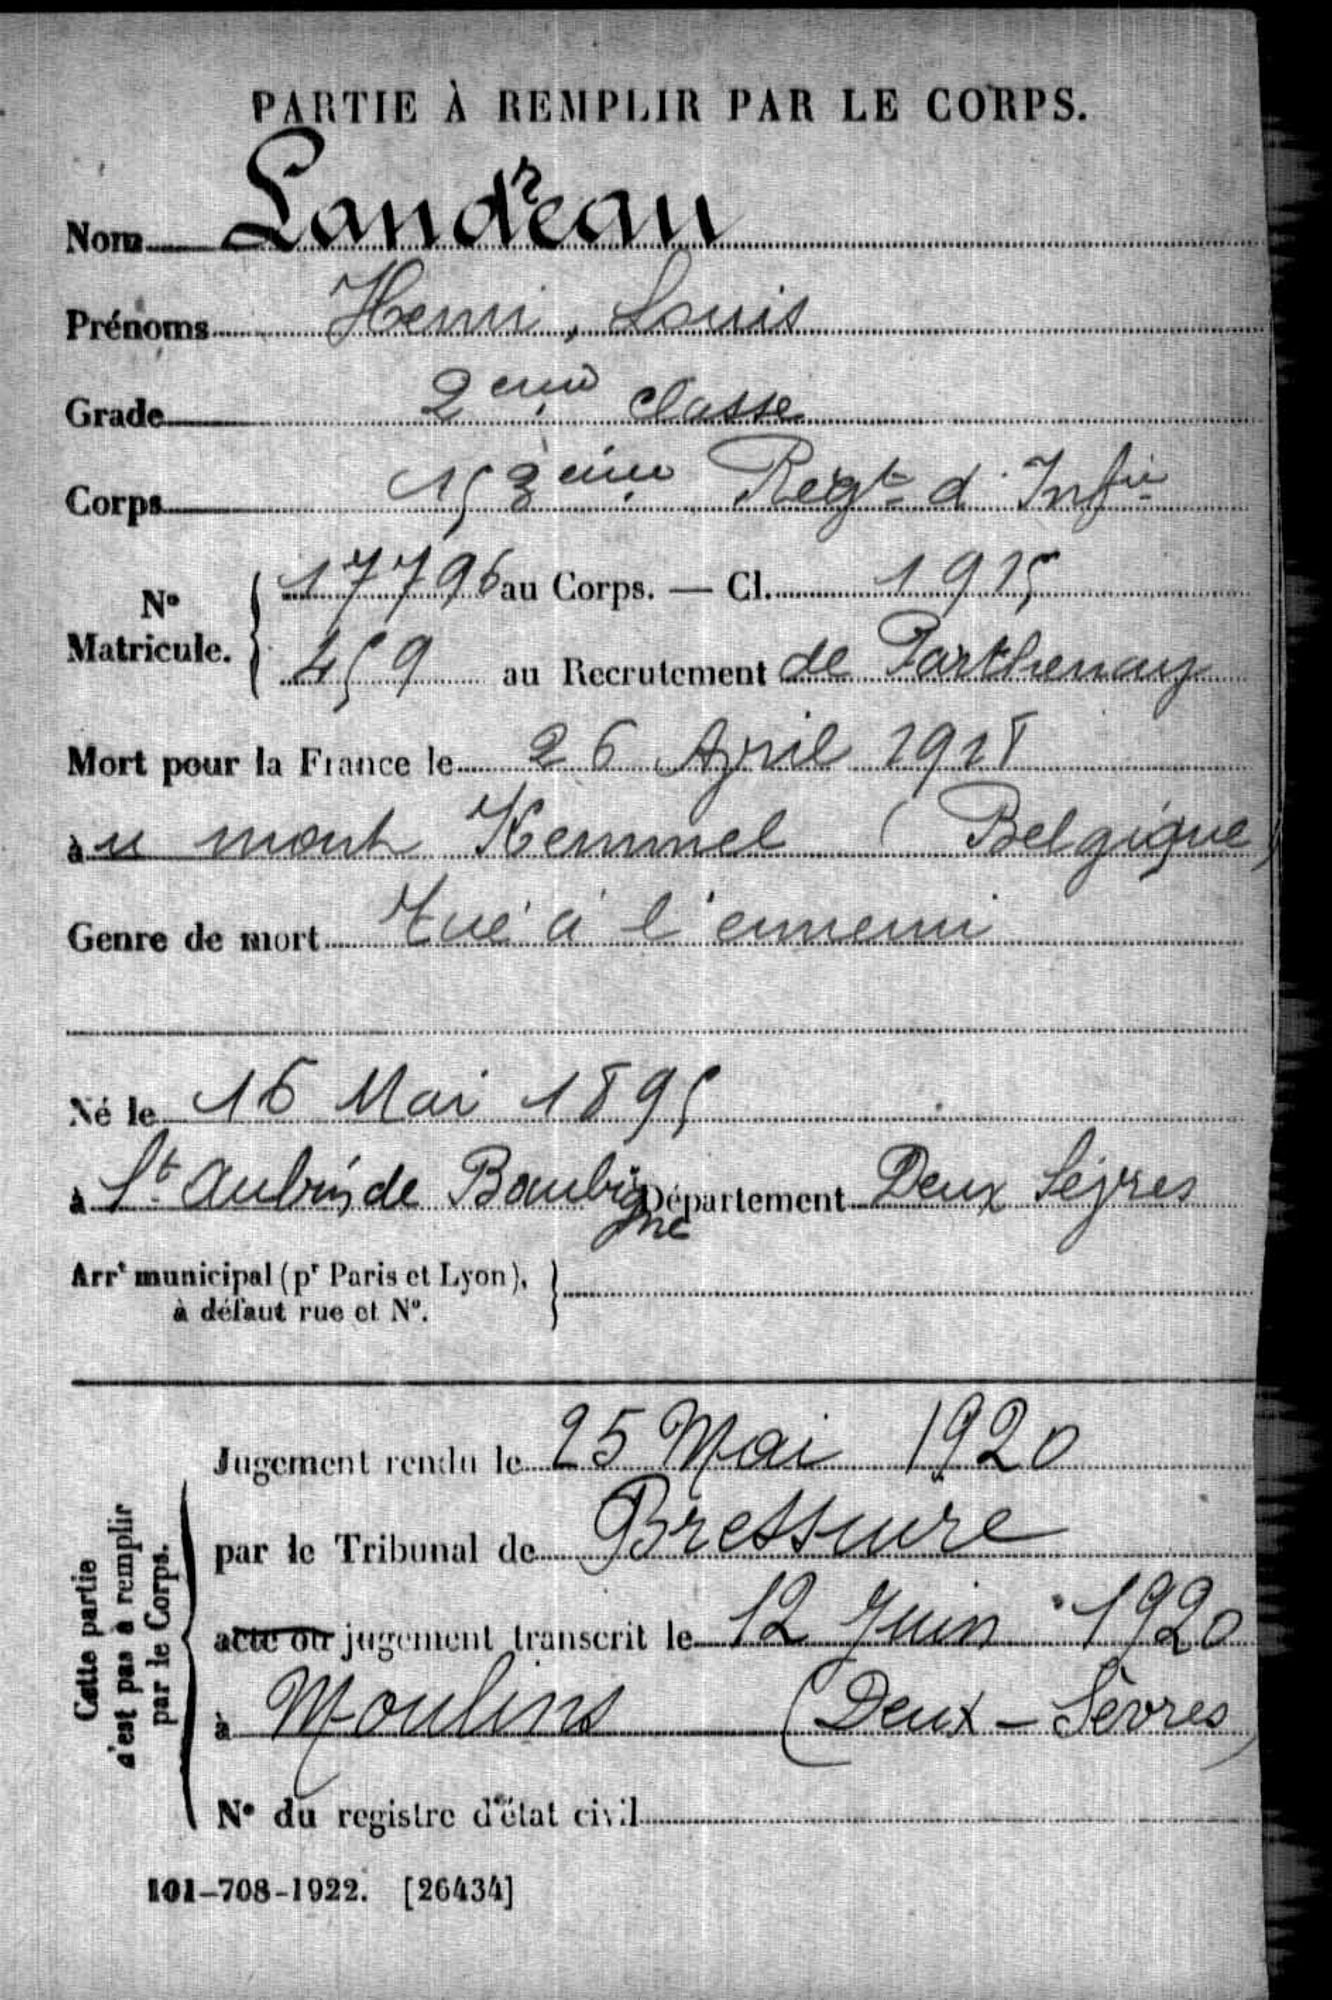 PARTIE À REMPLIR PAR LE CORPS.
Nom Landreau
Prénoms Henri, Louis
Grade 2eme classe
Corps 153eme Régt d'Infie
N° Matricule. { 17796 au Corps. — Cl. 1915
459 au Recrutement de Parthenay
Mort pour la France le 26 April 1918
à u mont Kemmel (Belgique)
Genre de mort Tué à l'ennemi
Né le 16 Mai 1895
à St Aubin de Baubigné Département Deux Sèvres
Arrt municipal (pr Paris et Lyon), }
à défaut rue et N°.
Jugement rendu le 25 Mai 1920
par le Tribunal de Bressuire
acte ou jugement transcrit le 12 Juin 1920
à Moulins (Deux-Sèvres)
N° du registre d'état civil
Cette partie
n'est pas à remplir
par le Corps.
101-708-1922. [26434]